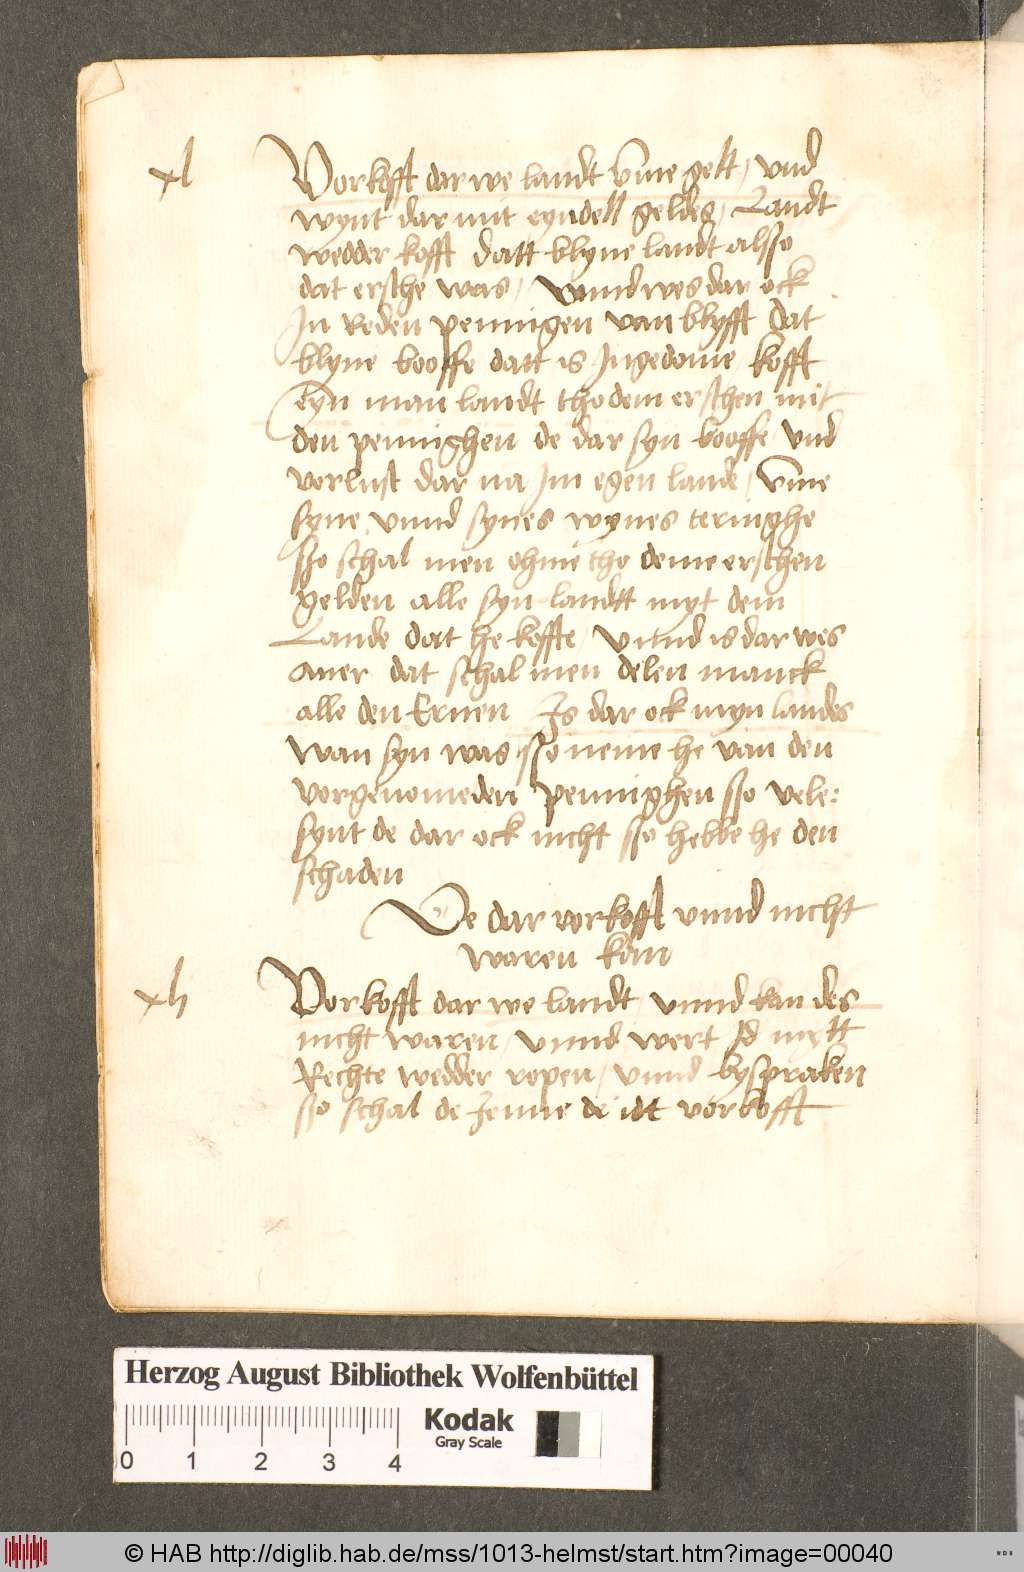 xl
Vorkofft dar we landt v̄me gelt / vnd
wynt dar mit eyndell geldes / Landt
wedder kofft datt blyue landt alsso
dat ersche was / vnnd wes dar ock
In Reden penningen van blyfft dat
blyue booffe datt is Ingedome kofft
eyn man landt tho dem erschen mit
den penninghen de dar syn booffe vnd
vorlust dar na sin egen lande / v̄me
syne vnnd synes wyues teringhe
sso schal men ohme tho deme erschen
gelden alle syn landtt myt dem
Lande dat he koffte / vnnd is dar wes
auer dat schal men delen manck
alle den Eruen Is dar ock myn landes
wan syn was sso neme he van den
vorgenomeden penninghen sso vele:
synt de dar ock nicht sso hebbe he den
schaden
De dar vorkofft vnnd nicht
waren kan
xli
Vorkofft dar we landt / vnnd kan des
nicht waren / vnnd wert Id mytt
Rechte wedder ropen / vnnd byspraken
sso schal de Jenne de idt vorkofft
Herzog August Bibliothek Wolfenbüttel
Kodak
Gray Scale
0 1 2 3 4
© HAB http://diglib.hab.de/mss/1013-helmst/start.htm?image=00040